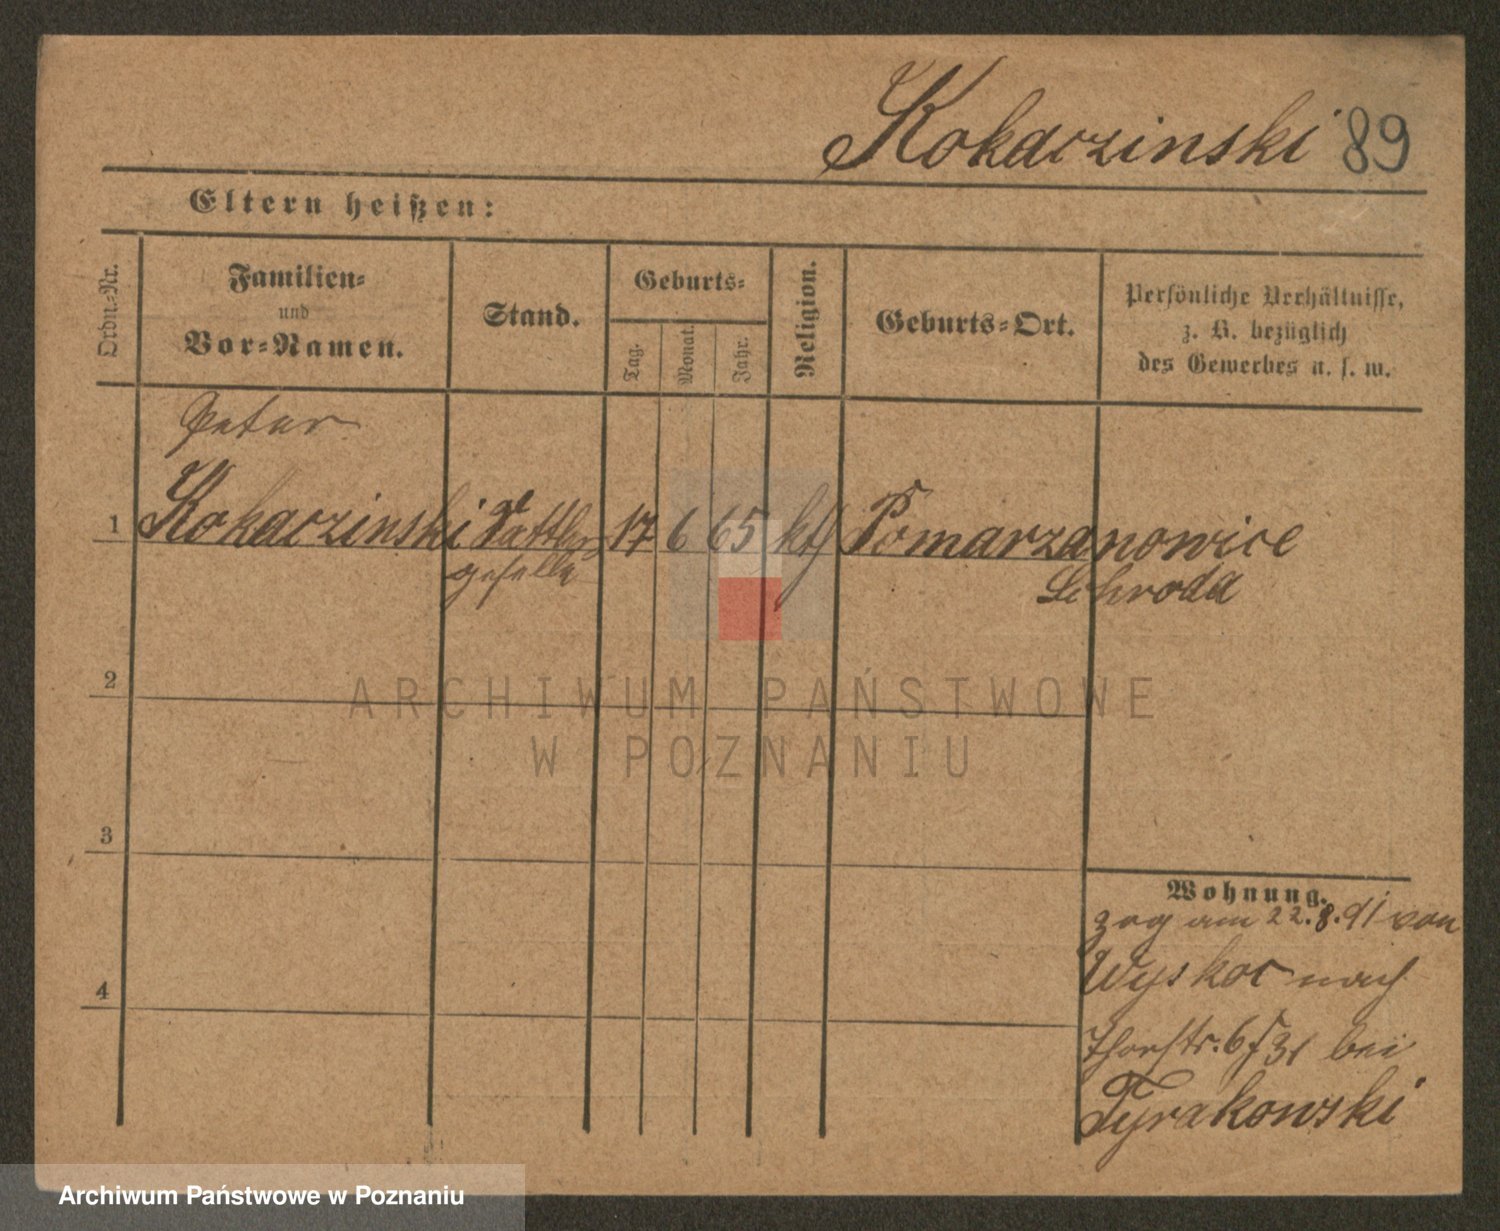 Kokaczinski 89
Eltern heißen:
Ordn.=Nr.
Familien=
und
Vor=Namen.
Stand.
Geburts=
Tag.
Monat.
Jahr.
Religion.
Geburts=Ort.
Persönliche Verhältnisse,
z. B. bezüglich
des Gewerbes u. s. w.
Peter
1 Kokaczinski Sattler 17 6 65 kth Pomarzanowice
geselle Schroda
2
3
4
Wohnung.
zog am 22.8.91 von
Wyskoc nach
Thorstr. bei
Tyrakowski
ARCHIWUM PAŃSTWOWE
W POZNANIU
Archiwum Państwowe w Poznaniu